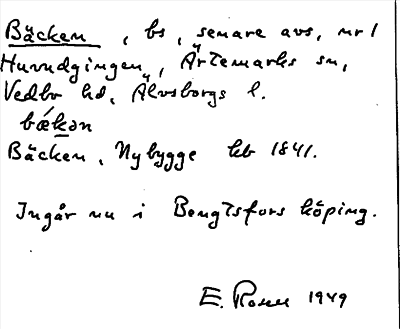 Bäcken, bs, senare avs, nr 1
Huvudgingen, Ärtemarks sn,
Vedbo hd, Älvsborgs l.
bǽkən
Bäcken, Nybygge hb 1841.
Ingår nu i Bengtsfors köping.
E. 1949